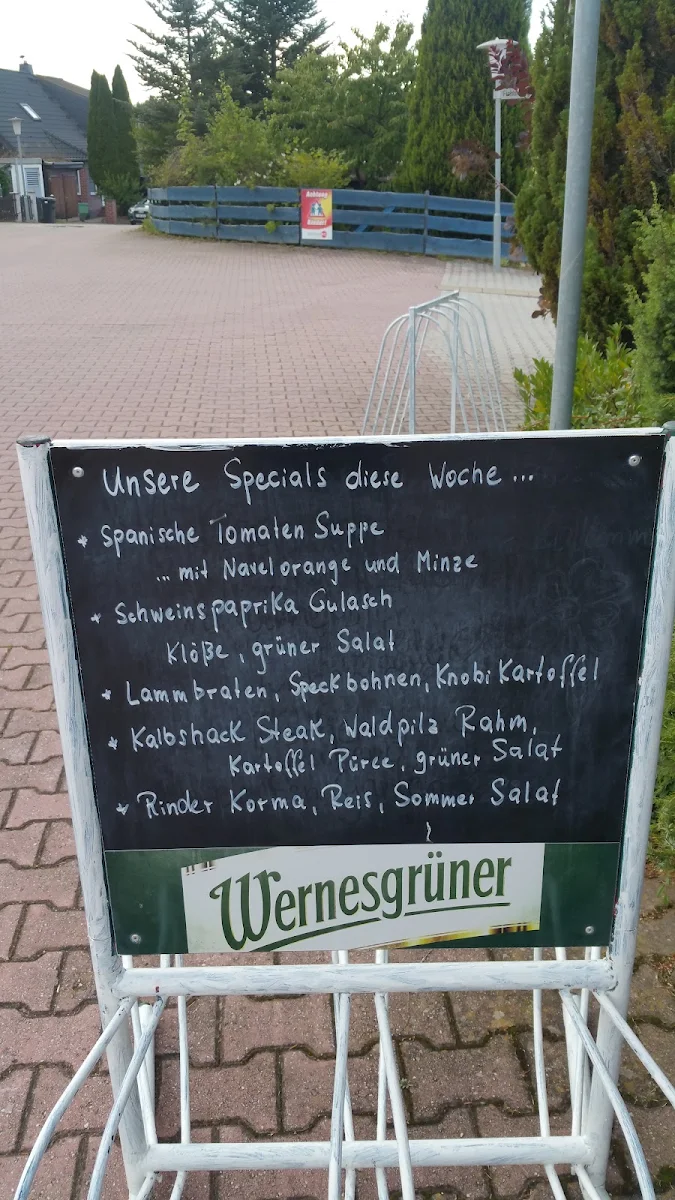 Achtung
Unsere Specials diese Woche...
* Spanische Tomaten Suppe
... mit Navelorange und Minze
* Schweinspaprika Gulasch
Klöße, grüner Salat
* Lammbraten, Speckbohnen, Knobi Kartoffel
* Kalbshack Steak, Waldpilz Rahm,
Kartoffel Püree, grüner Salat
* Rinder Korma, Reis, Sommer Salat
Wernesgrüner